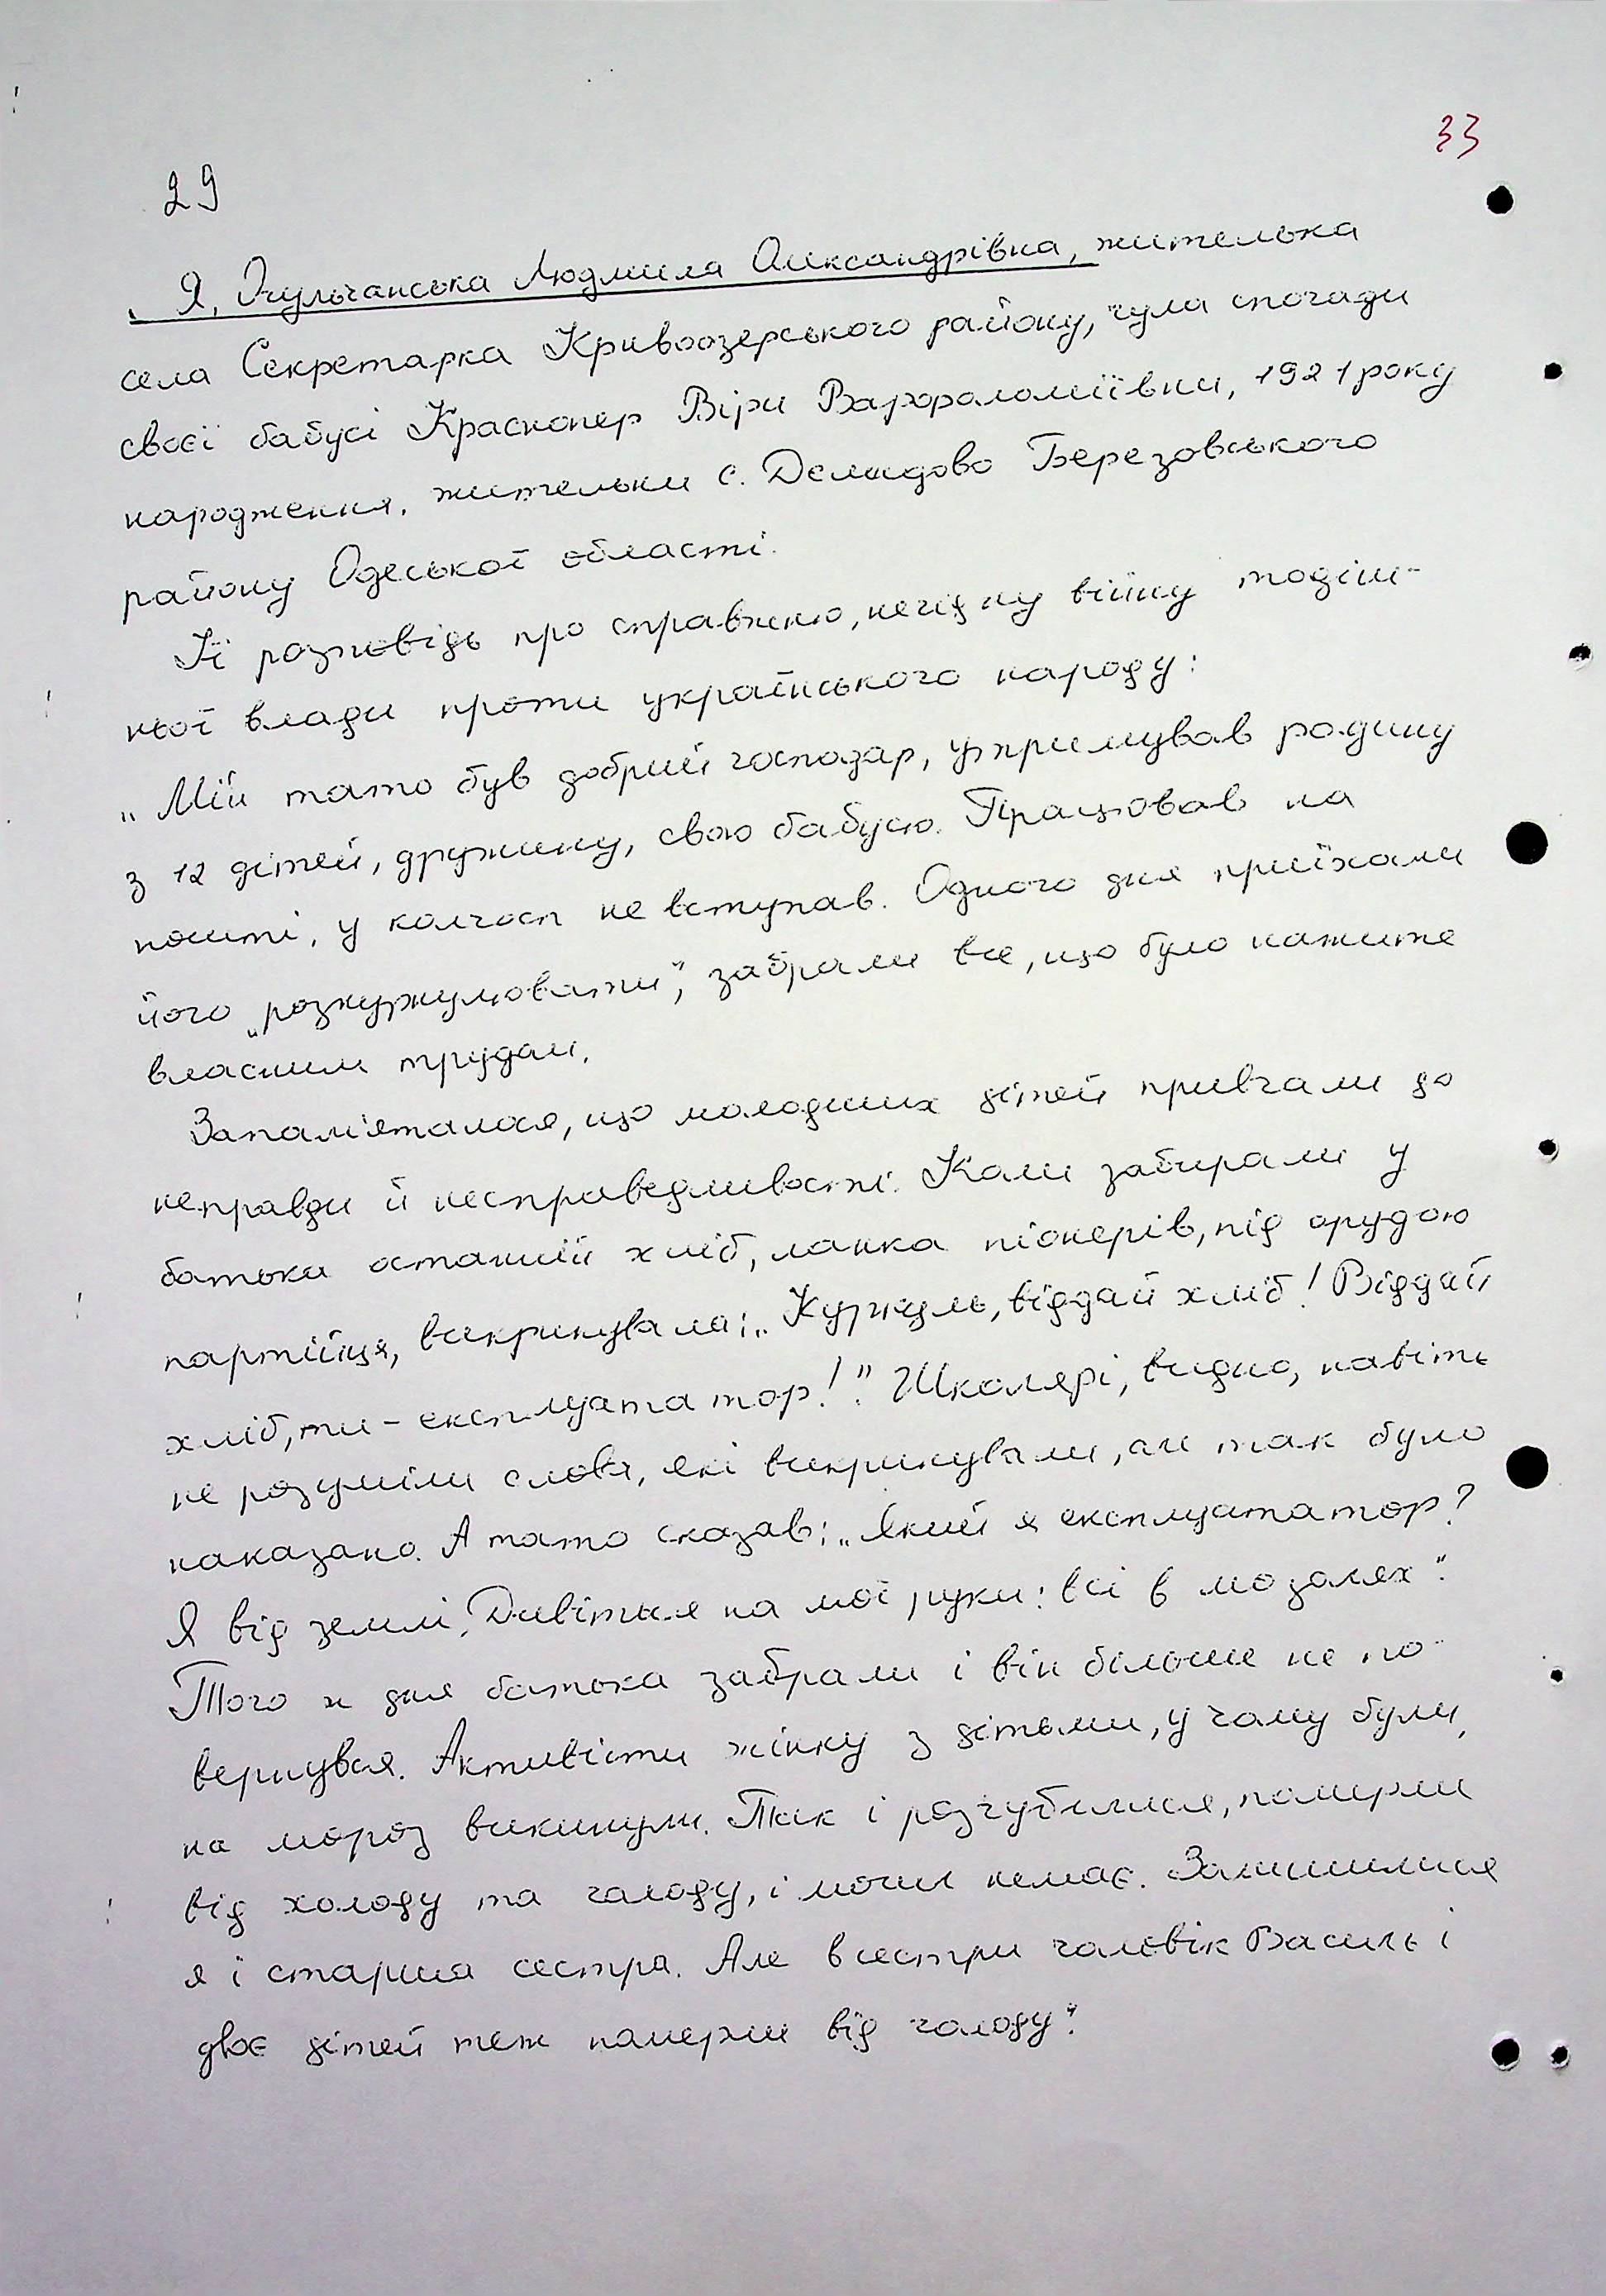 33
29
Я, Очульчанська Людмила Олександрівна, жителька
села Секретарка Кривоозерського району, чула спогади
своєї бабусі Краснопер Віри Варфоломіївни, 1921 року
народження, жительки с. Демидово Березовського
району Одеської області.
Її розповідь про справжню, нечідну війну тодіш-
ньої влади проти українського народу:
„Мій тато був добрий господар, утримував родину
з 12 дітей, дружину, свою бабусю. Працював на
пошті, у колгосп не вступав. Одного дня приїхали
його „розкуркулювати", забрали все, що було нажите
власним трудом.
Запам'яталося, що молодших дітей привчали до
неправди й несправедливості. Коли забирали у
батьки останній хліб, ланка піонерів, під орудою
партійця, викрикувала: „Куркуль, віддай хліб! Віддай
хліб, ти - експлуататор!". Школярі, видно, навіть
не розуміли слова, які викрикували, але так було
наказано. А тато сказав: „Який я експлуататор?
Я від землі. Дивіться на мої руки: всі в мозолях".
Того ж дня батька забрали і він більше не по-
вернувся. Активісти жінку з дітьми, у чому були,
на мороз викинули. Так і розгубилися, померли
від холоду та голоду, і могил немає. Залишилися
я і старша сестра. Але в сестри чоловік Василь і
двоє дітей теж померли від голоду".